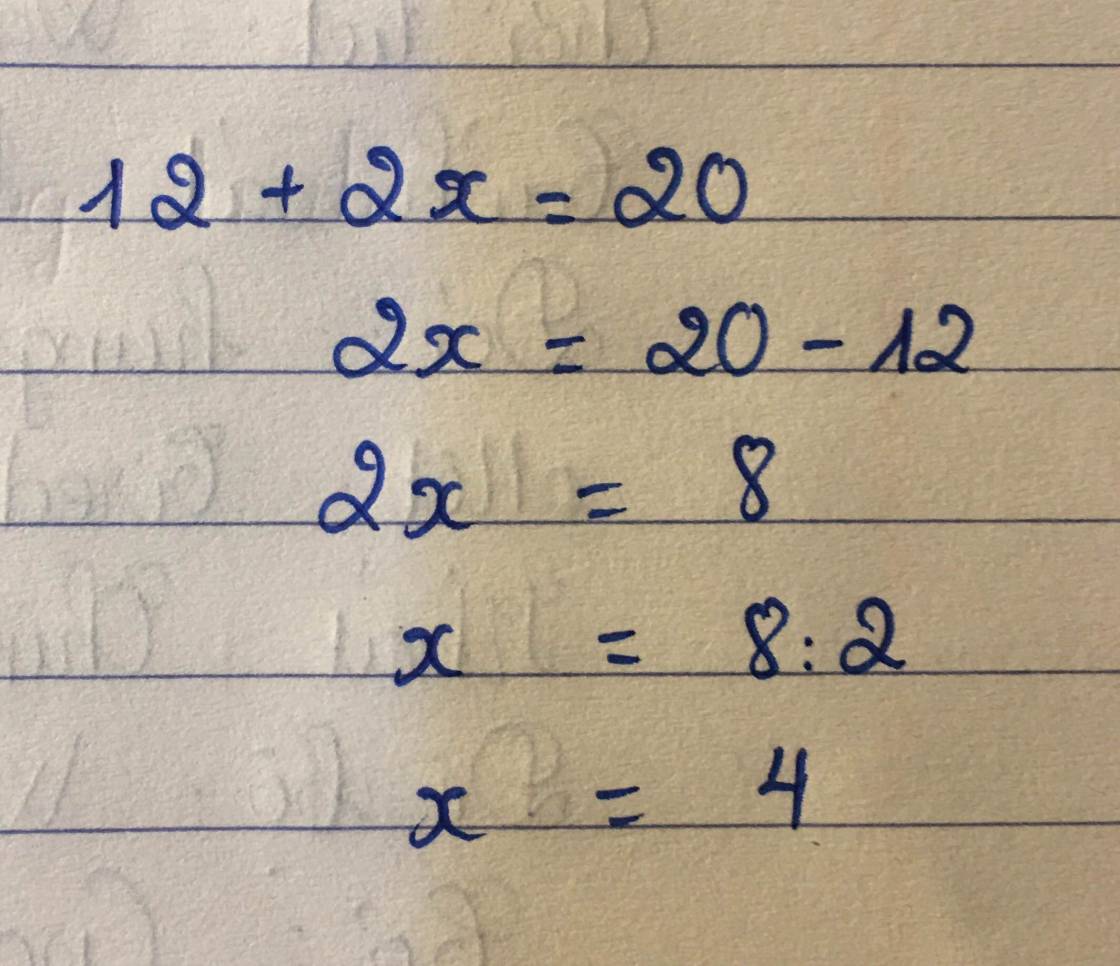 12 + 2x = 20
2x = 20 - 12
2x = 8
x = 8:2
x = 4